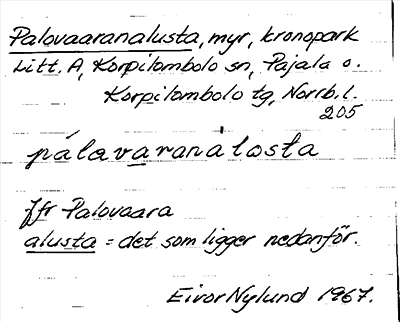 Palovaaranalusta, myr, kronopark
Litt. A, Korpilombolo sn, Pajala o.
Korpilombolo tg, Norrb. l.
205
pálavaranálosta
ffr Palovaara
alusta = det som ligger nedanför.
Eivor Nylund 1967.